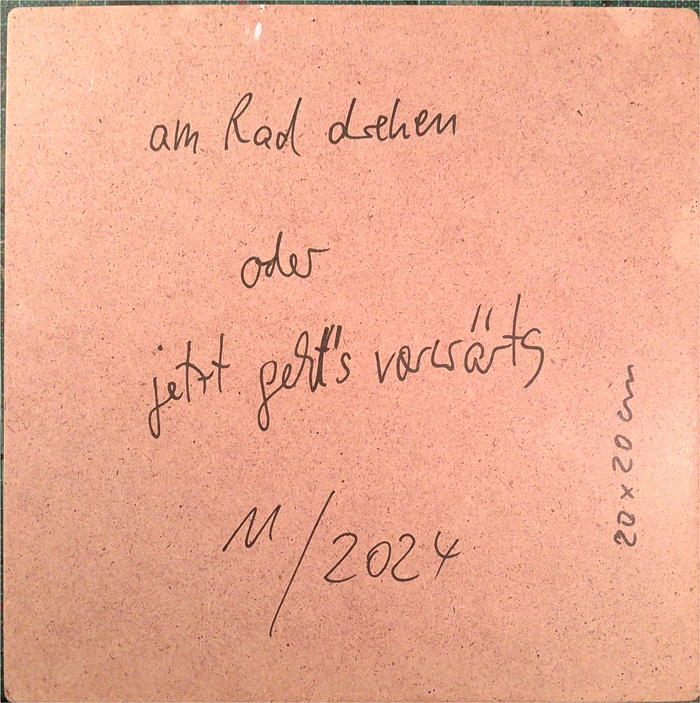 am Rad drehen
oder
jetzt geht's vorwärts
11/2024
20 x 20 cm